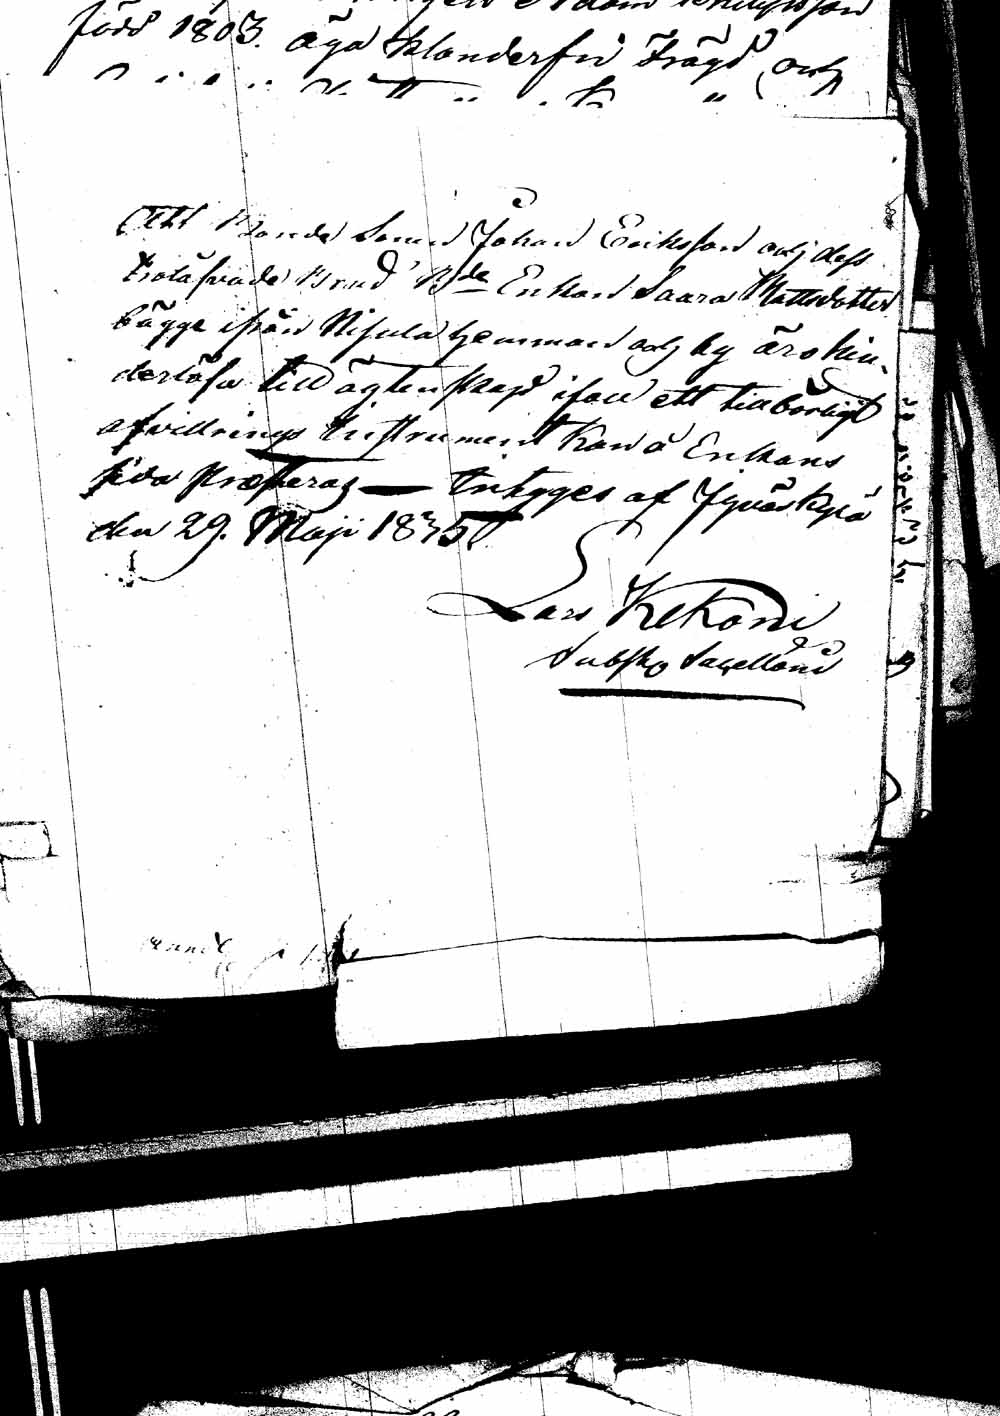 Adam
född 1803. äga klanderfri Frägd, och
Att Bonde Sonen Johan Eriksson och dess
trolåfvade Brud Bde Enkan Saara Mattsdotter
bägge ifrån Nisula hemman och by äro hin-
derlösa till ägtenskap ifall ett tillbörligt
afvittrings Instrument kan å Enkans
sida præsteras — Intygges af Jyväskylä
den 29. Maji 1835
Lars Kekoni
Sacellan